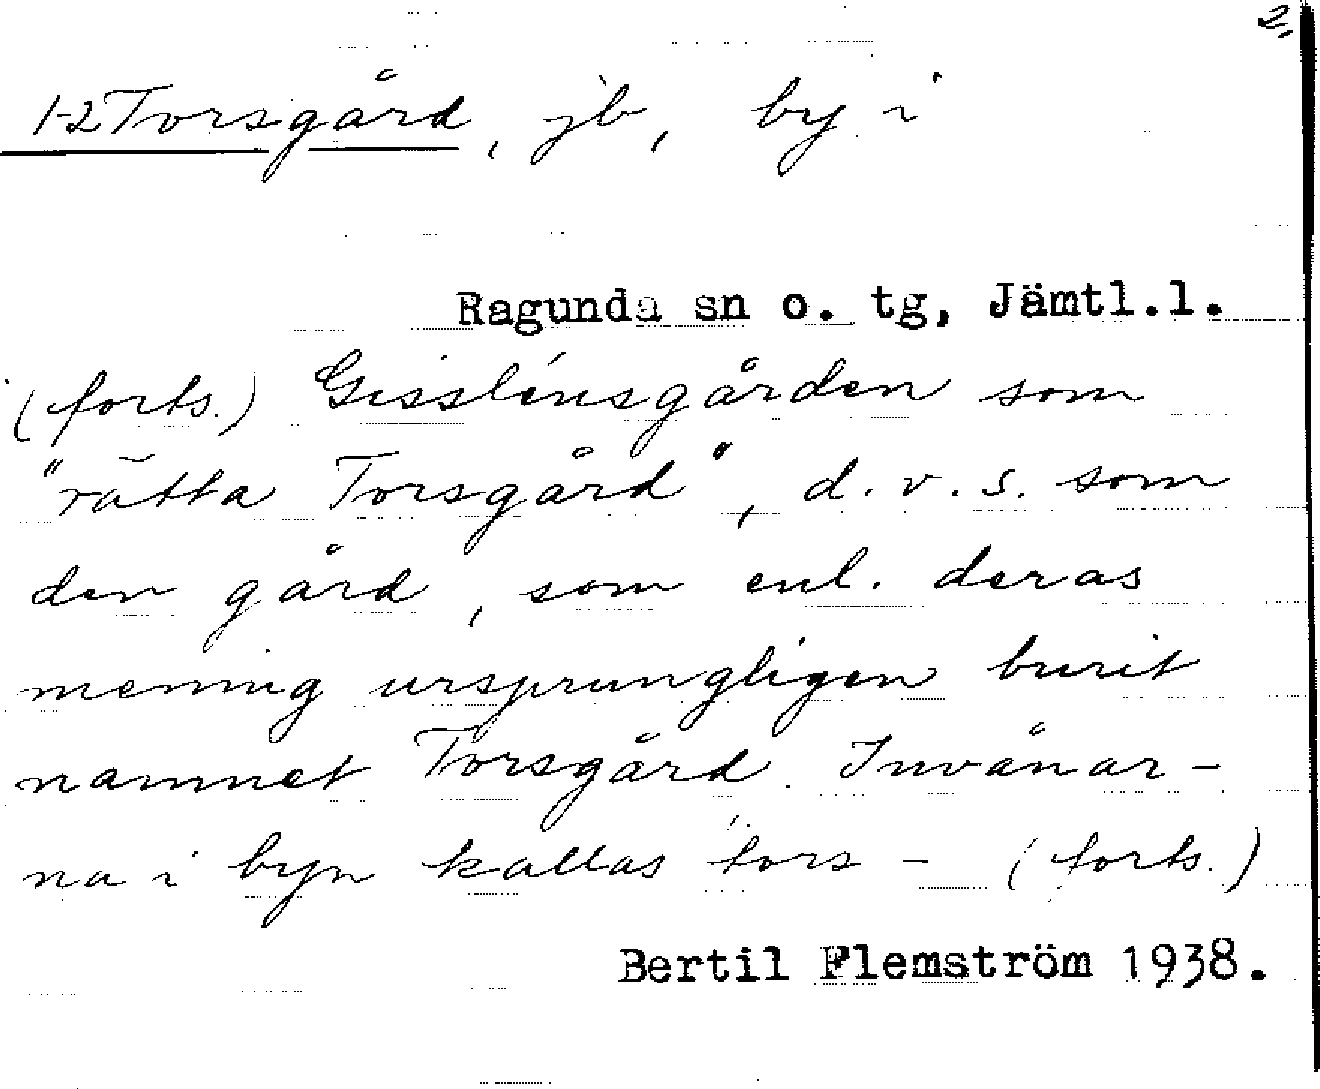 2,
1-2 Torsgård, jb, by i
Ragunda sn o. tg, Jämtl.l.
(forts.) Gisslénsgården som
"rätta Torsgård", d.v.s. som
den gård, som enl. deras
mening ursprungligen burit
namnet Torsgård. Invånar-
na i byn kallas tors- (forts.)
Bertil Flemström 1938.